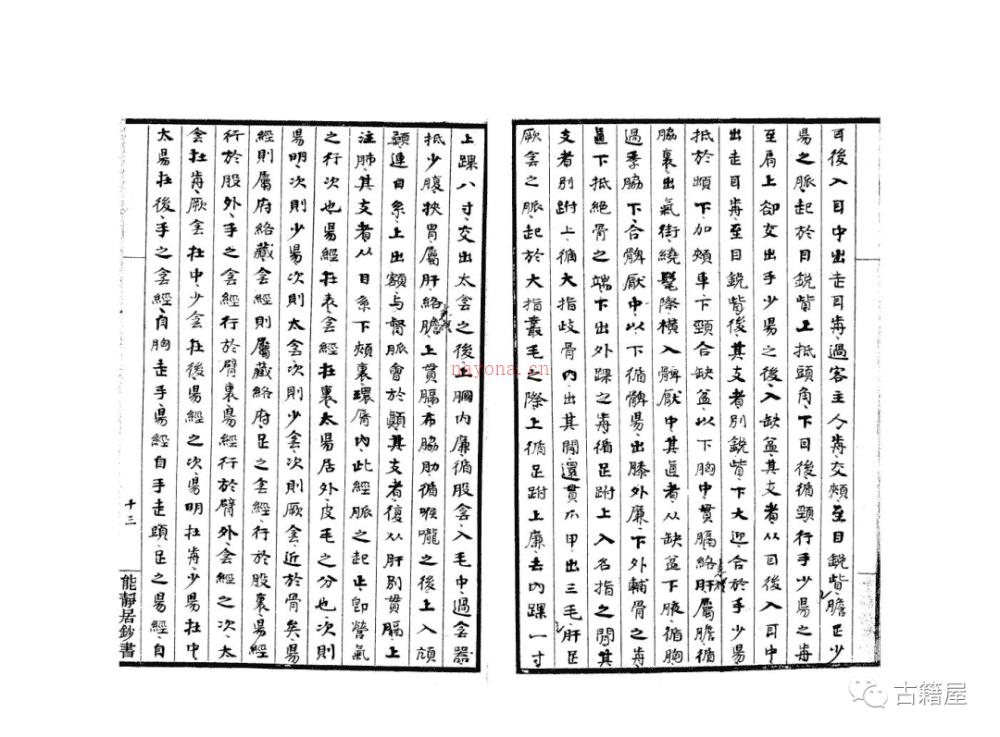 耳後入耳中出走耳歬過客主人歬交頰至目銳眥膽足少
昜之脈起於目銳眥上抵頭角下耳後循頸行手少昜之歬
至肩上卻交出手少昜之後入缺盆其支者从耳後入耳中
出走耳歬至目銳眥後其支者別銳眥下大迎合於手少昜
抵於䪼下加頰車下頸合缺盆以下胸中貫膈絡肝屬膽循
脇裏出氣街繞髦際橫入髀厭中其直者从缺盆下腋循胸
過季脇下合髀厭中以下循髀昜出膝外廉下外輔骨之歬
直下抵絕骨之端下出外踝之歬循足跗上入名指之間其
支者別跗上循大指歧骨內出其間還貫爪甲出三毛肝足
厥侌之脈起於大指叢毛之際上循足跗上廉去內踝一寸
上踝八寸交出太侌之後上膕內廉循股侌入毛中過侌器
抵少腹挾胃屬肝絡膽上貫膈布脇肋循喉嚨之後上入頏
顙連目系上出額与督脈會於顚其支者復从肝別貫膈上
注肺其支者从目系下頰裏環脣內此經脈之起止卽營氣
之行次也昜經在表侌經在裏太昜居外皮毛之分也次則
昜明次則少昜次則太侌次則少侌次則厥侌近於骨矣昜
經則屬府絡藏侌經則屬藏絡府足之侌經行於股裏昜經
行於股外手之侌經行於臂裏昜經行於臂外侌經之次太
侌在歬厥侌在中少侌在後昜經之次昜明在歬少昜在中
太昜在後手之侌經自胸走手昜經自手走頭足之昜經自
十三
能靜居鈔書
nayona.cn
古籍屋